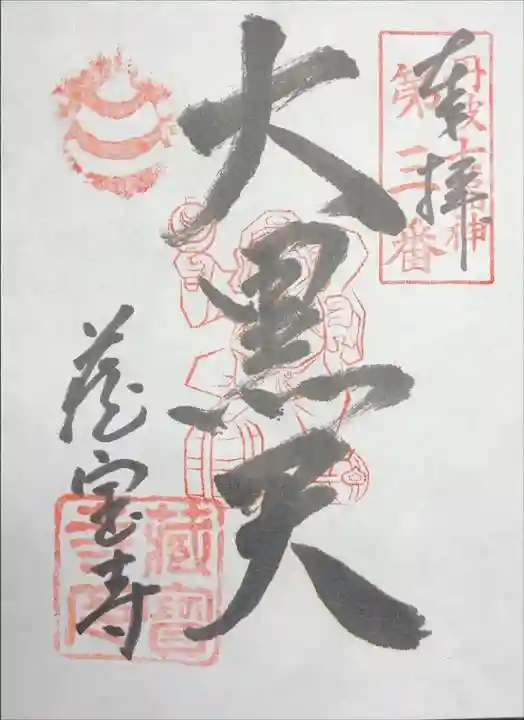 奉拝
丹波七福神
第三番
大黒天
蔵宝寺
藏寳
寺印